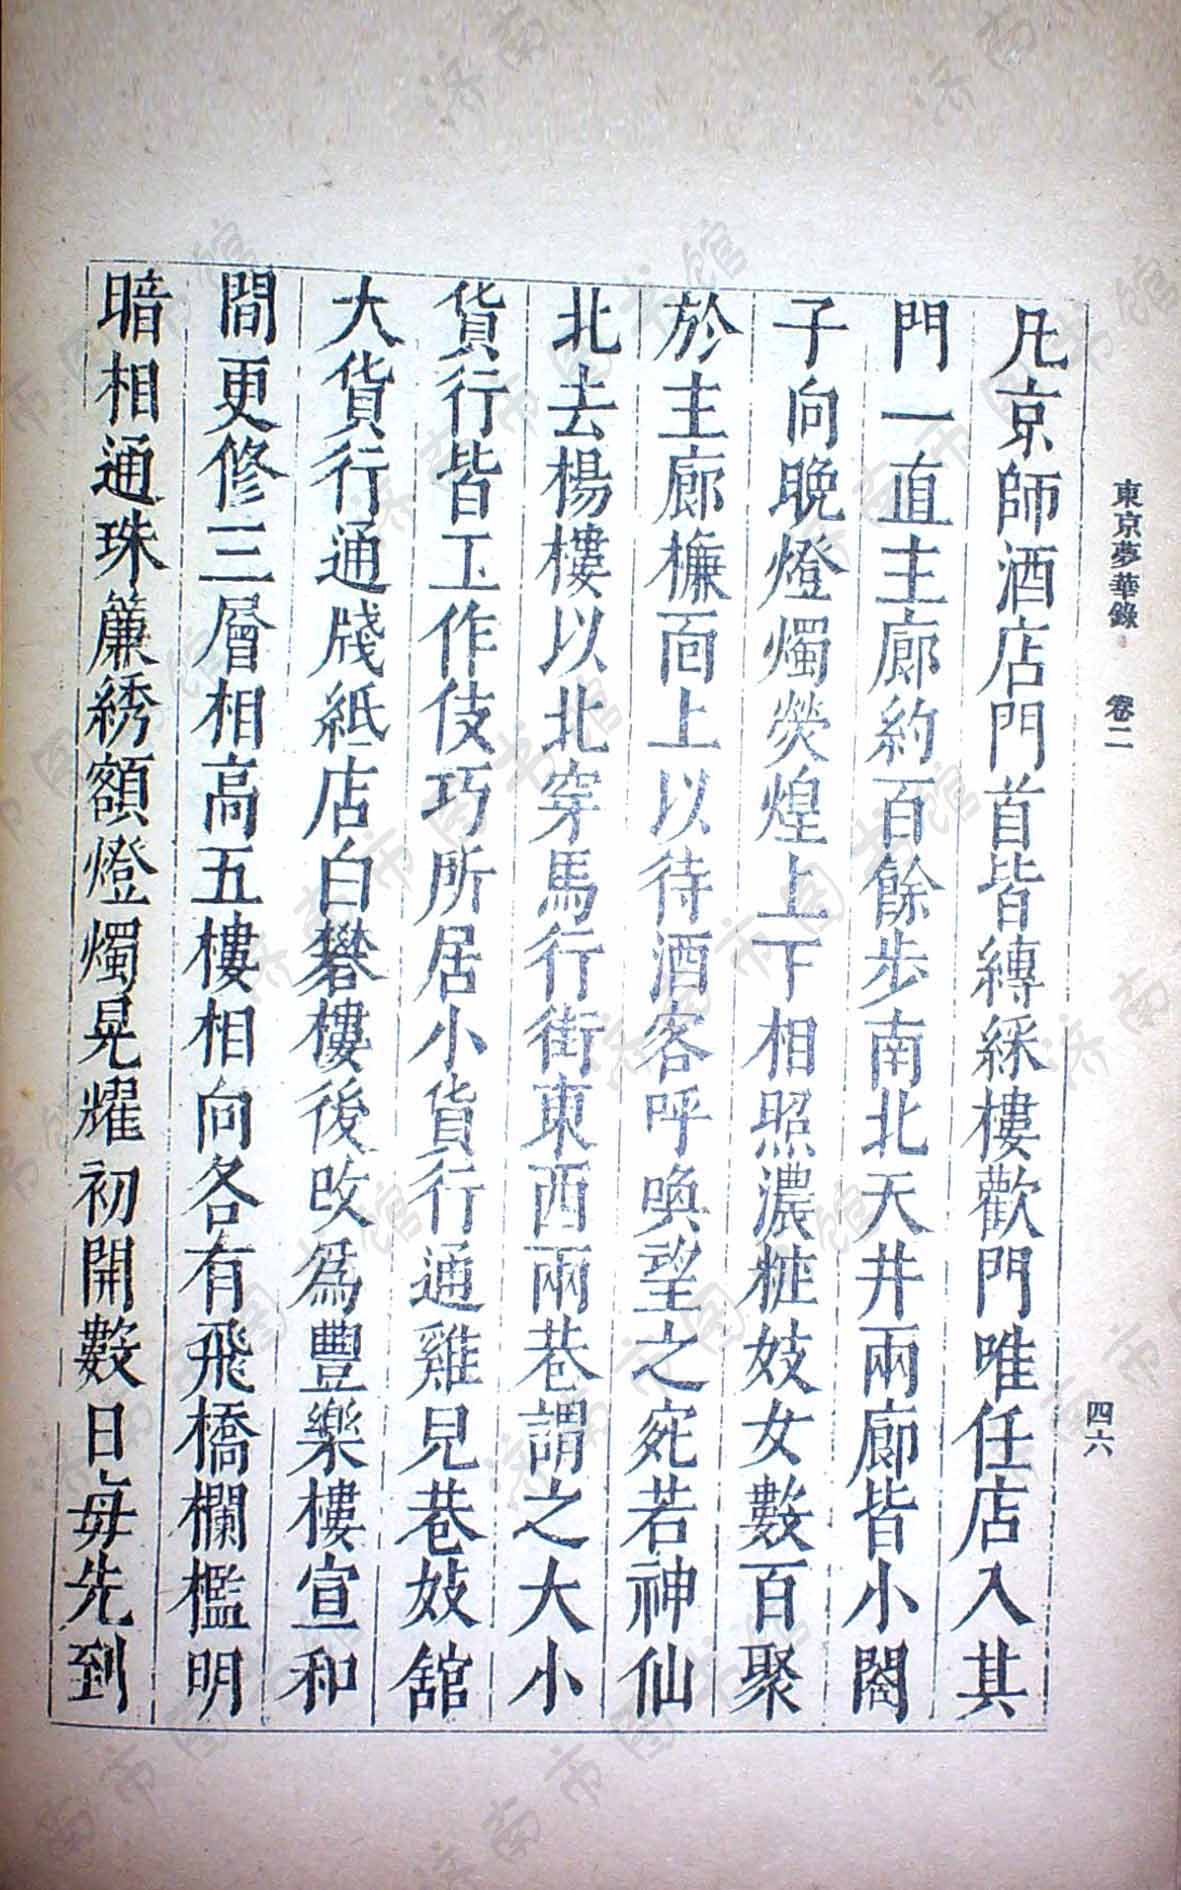 東京夢華錄 卷二 四六
凡京師酒店門首皆縛綵樓歡門唯任店入其
門一直主廊約百餘步南北天井兩廊皆小閤
子向晚燈燭熒煌上下相照濃粧妓女數百聚
於主廊槏面上以待酒客呼喚望之宛若神仙
北去楊樓以北穿馬行街東西兩巷謂之大小
貨行皆工作伎巧所居小貨行通雞兒巷妓舘
大貨行通牋紙店白礬樓後改爲豐樂樓宣和
間更修三層相高五樓相向各有飛橋欄檻明
暗相通珠簾綉額燈燭晃耀初開數日每先到
济南市图书馆